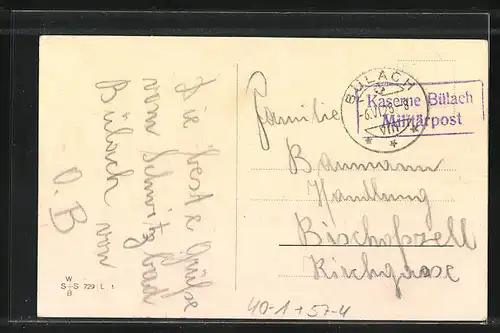 Die beste Grüße
vom Schmutzbad
Bülach von
O. B
W
S+S 729 L 1
B
BÜLACH
-6.VI.29-
VIII
Kaserne Bülach
Militärpost
Familie
Baumann
Handlung
Bischofszell
Kirchgasse
40-1+57-4